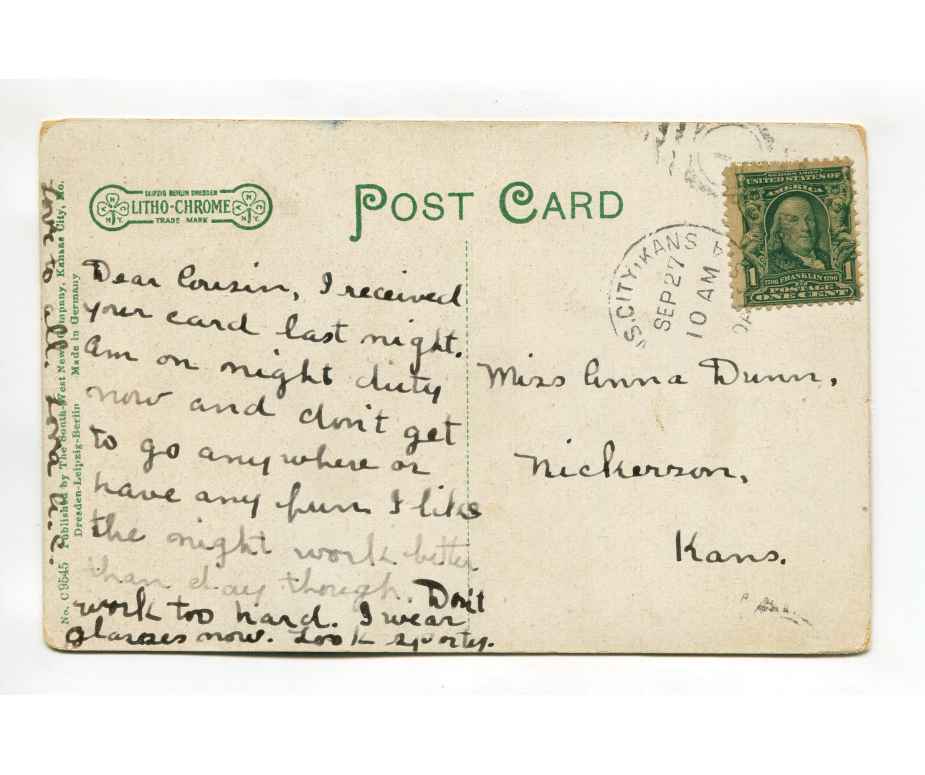 LEIPZIG BERLIN DRESDEN
LITHO-CHROME
TRADE MARK
POST CARD
S. CITY, KANS
SEP 27
10 AM
UNITED STATES OF
AMERICA
1 1
FRANKLIN
POSTAGE
ONE CENT
Dear Cousin, I received
your card last night.
Am on night duty
now and don't get
to go anywhere or
have any fun I like
the night work better
than day though. Don't
work too hard. I wear
glasses now. Look sporty.
Love to all.
Miss Anna Dunn,
Nickerson,
Kans.
No. C9545 Published by The South-West News Company, Kansas City, Mo.
Dresden-Leipzig-Berlin Made in Germany